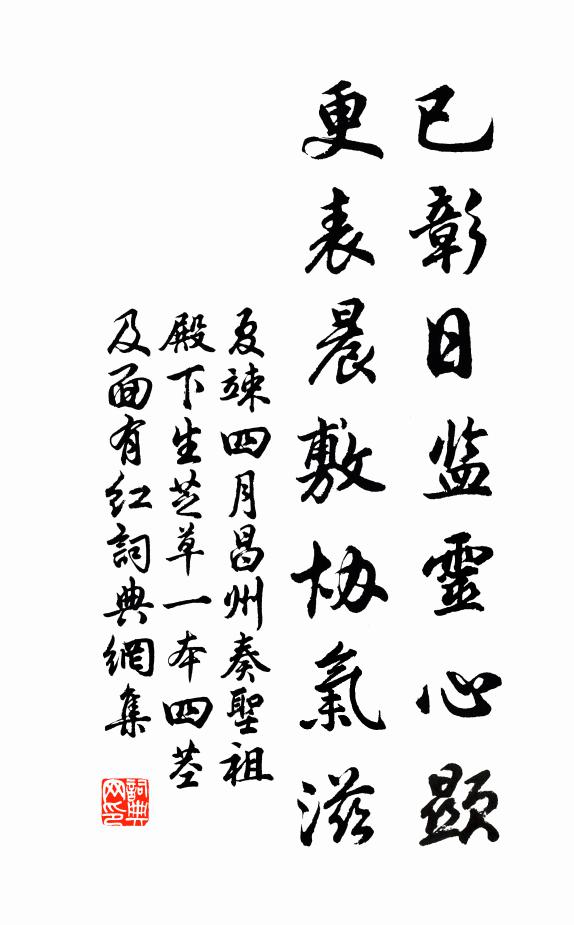 已彰日监靈心顯
更表晨敷协氣滋
夏竦四月昌州奏聖祖
殿下生芝草一本四茎
及面有红詞典網集
詞典网印